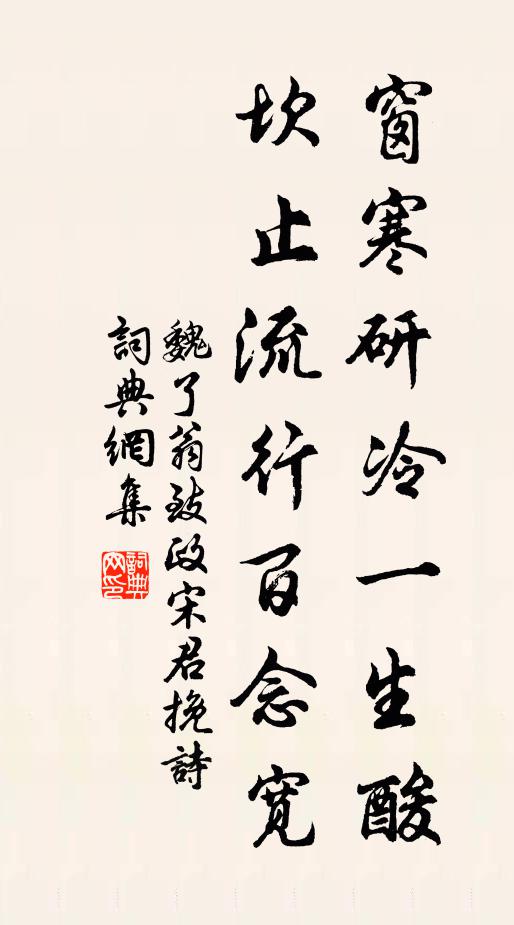 窗寒研冷一生酸
坎止流行百念寬
魏了翁致政宋君挽詩
詞典網集
詞典网印